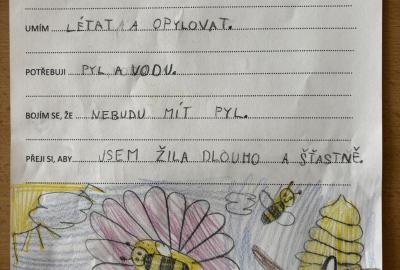 UMÍM LÉTAT A OPYLOVAT.
POTŘEBUJI PYL A VODU.
BOJÍM SE, ŽE NEBUDU MÍT PYL.
PŘEJI SI, ABY JSEM ŽILA DLOUHO A ŠŤASTNĚ.